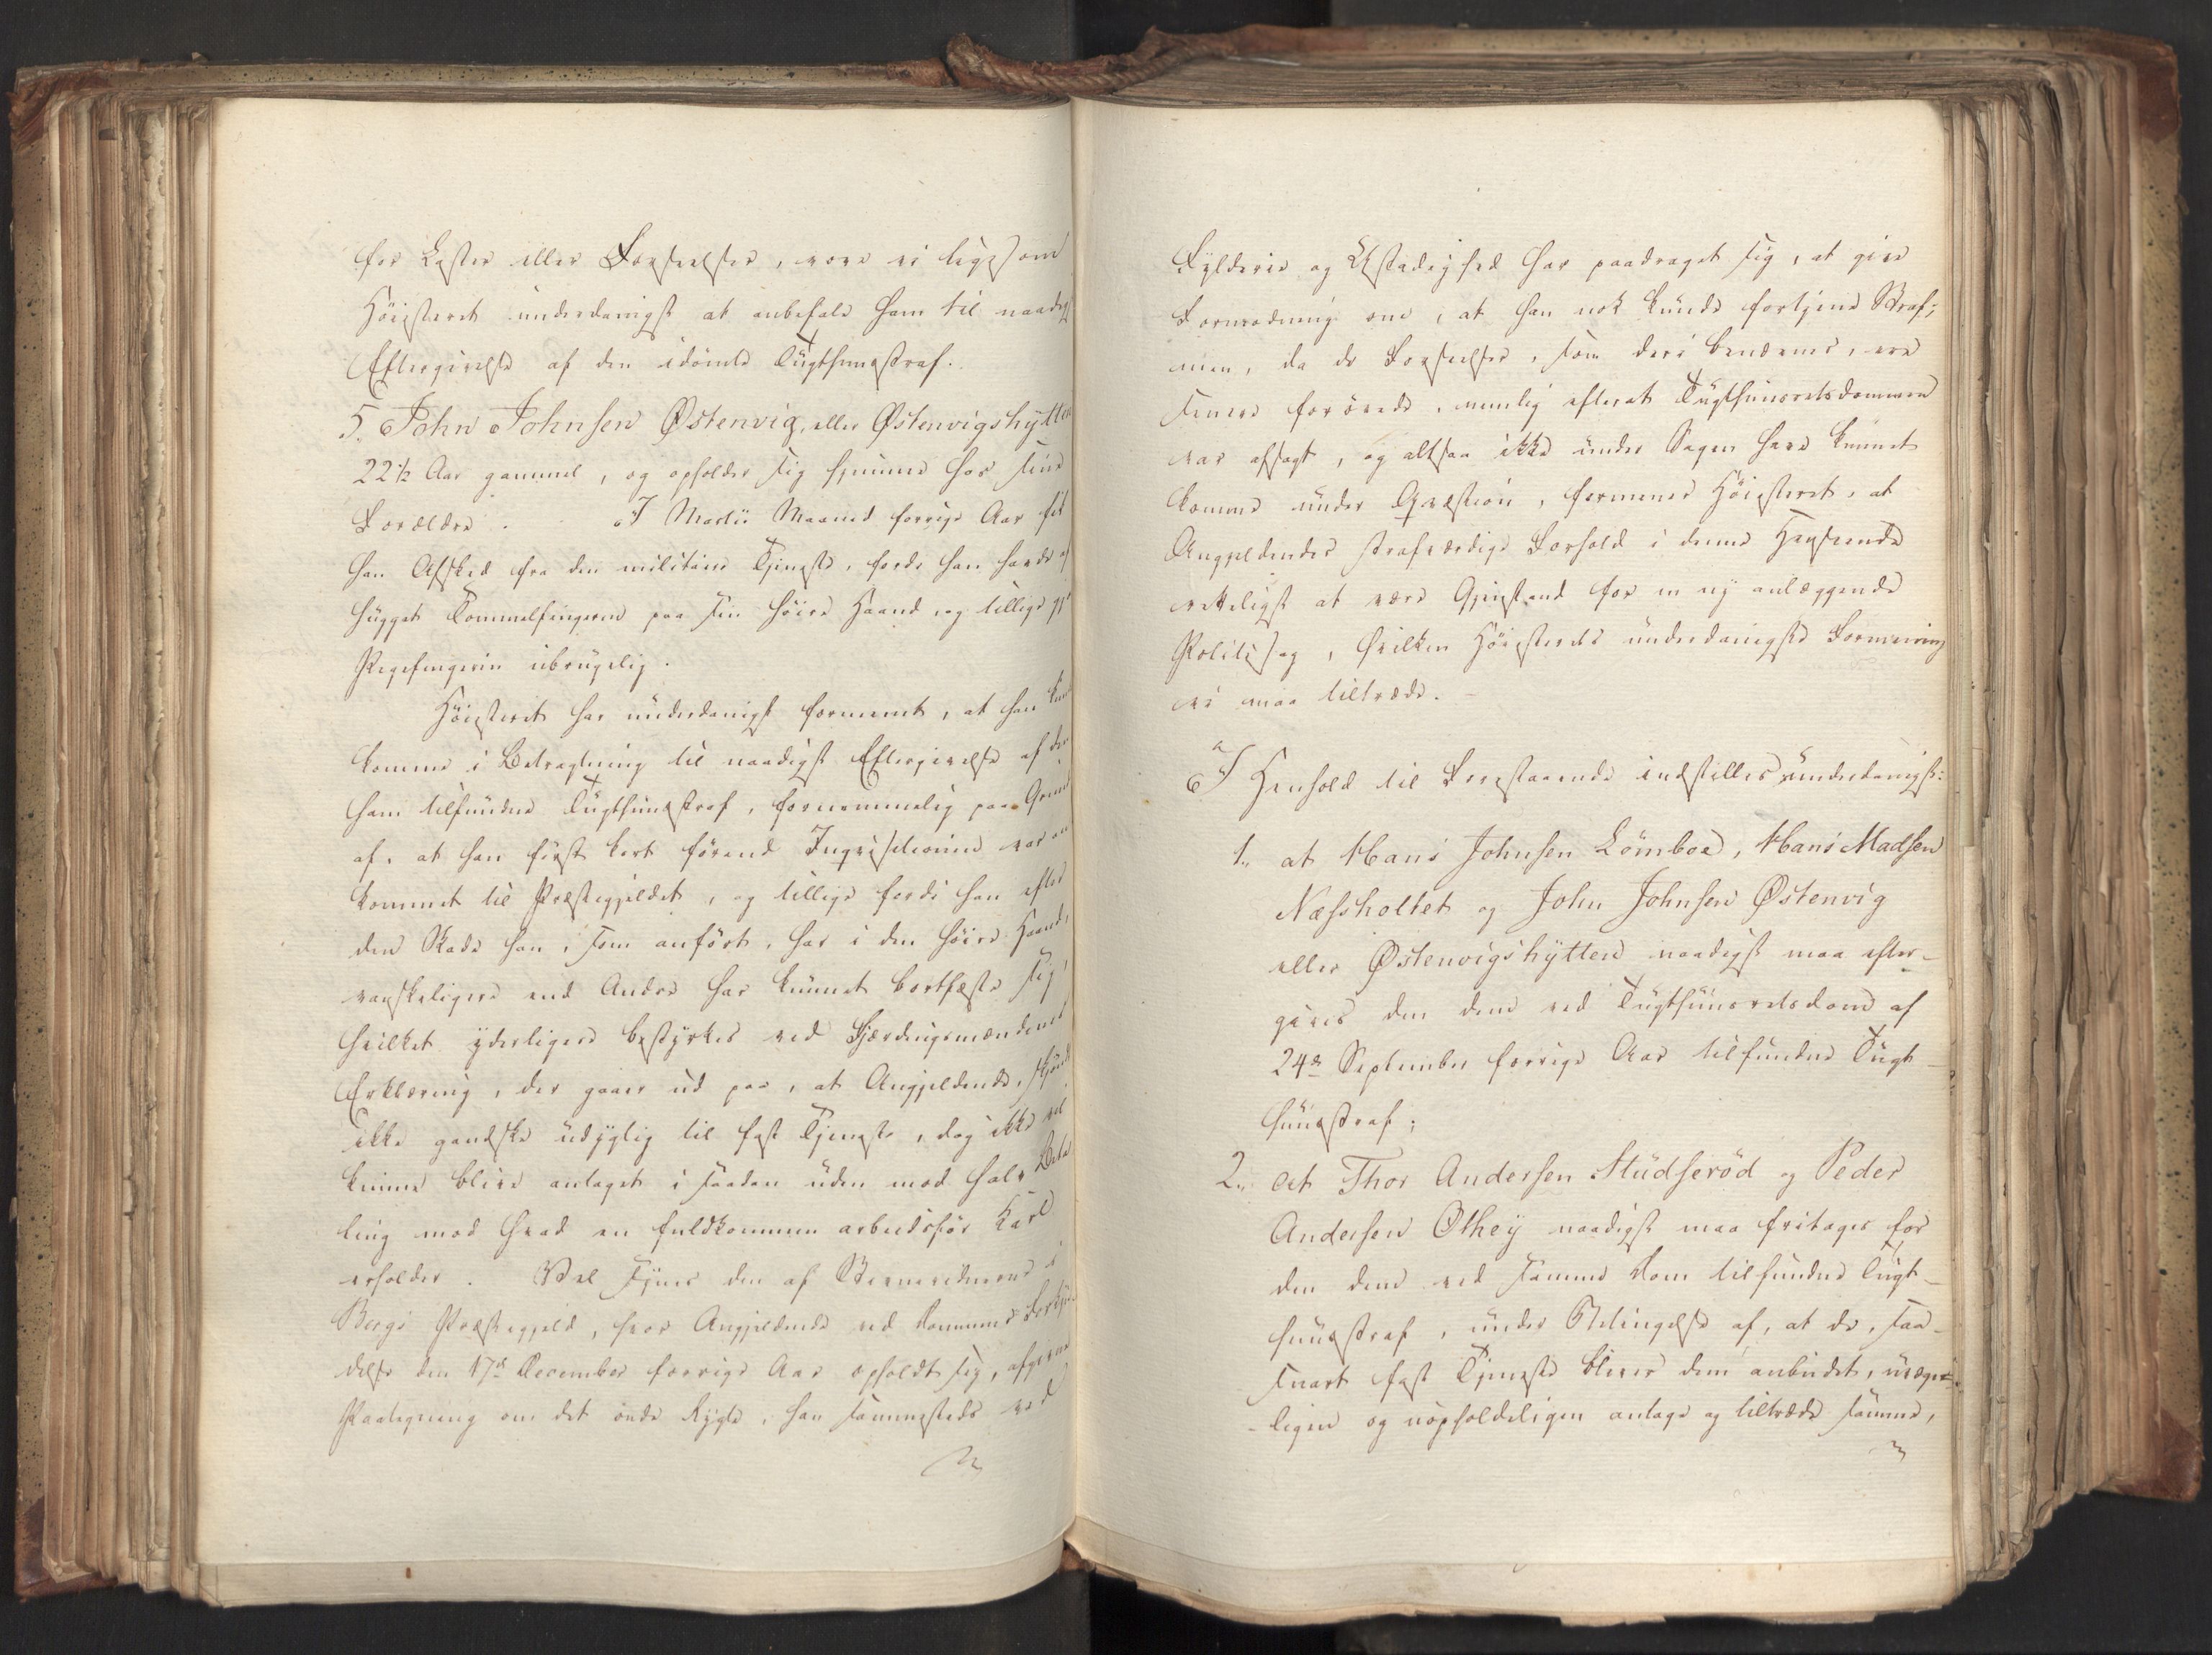 for Laster eller Forseelser, vove vi ligesom
Höiesteret underdanigst at anbefale ham til naadigst
Eftergivelse af den idömte Tugthuusstraf.
5. John Johnsen Østenvig, eller Østenvigshytten
22½ Aar gammel, og opholder sig hjemme hos sine
Forældre. I Martii Maaned forrige Aar fik
han Afsked fra den militaire Tjeneste, fordi han havde af
hugget Tommelfingeren paa sin höire Haand, og tillige
Pegefingeren ubrugelig.
Höiesteret har underdanigst formeent, at han
komme i Betragtning til naadigst Eftergivelse af den
ham tilfundne Tugthuusstraf, fornemmelig paa Grund
af, at han först kort förend Inqvisitionen var an
kommet til Præstegjeldet, og tillige fordi han efter
den Skade han, som anfört, har i den höire Haand,
vanskeligere end Andre har kunnet bortfæste sig,
hvilket yderligere bestyrkes ved Fjerdingsmændenes
Erklæring, der gaaer ud paa, at Angjeldende, skjöndt
ikke gandske udygtig til fast Tjeneste, dog ikke vil
kunne blive antaget i saadan uden mod halv Beta
ling mod hvad en fuldkommen arbeidsför Karl
erholder. Vel synes den af Stevnevidnerne i
Bergs Præstegjeld, hvor Angjeldende ved Dommens Forkyn
delse den 17de December forrige Aar opholdt sig, afgivne
Paategning om det onde Rygte, han sammesteds ved
Fylderie og Ustadighed har paadraget sig, at give
Formodning om, at han nok kunde fortjene Straf;
men, da de Forseelser, som deri benævnes, ere
senere forövede, nemlig efterat Tugthuusretsdommen
var afsagt, og altsaa ikke under Sagen have kunnet
komme under Qvæstion, formener Höiesteret, at
Angjeldendes strafværdige Forhold i denne Henseende
retteligst at være Gjenstand for en ny anlæggende
Politiesag, hvilken Höiesterets underdanigste Formening
vi maa tiltræde.
I Henhold til Forestaaende indstilles underdanigst:
1., at Hans Johnsen Lömboe, Hans Madsen
Næssholtet og John Johnsen Østenvig
eller Østenvigshytten naadigst maa efter-
gives den dem ved Tugthuusretsdom af
24de September forrige Aar tilfundne Tugt-
huusstraf;
2., at Thor Andersen Studseröd og Peder
Andersen Øthey naadigst maa fritages for
den dem ved samme Dom tilfundne Tugt-
huusstraf, under Betingelse af, at de, saa-
snart fast Tjeneste bliver dem anbudet, uvæger-
-ligen og uopholdeligen antage og tiltræde samme,